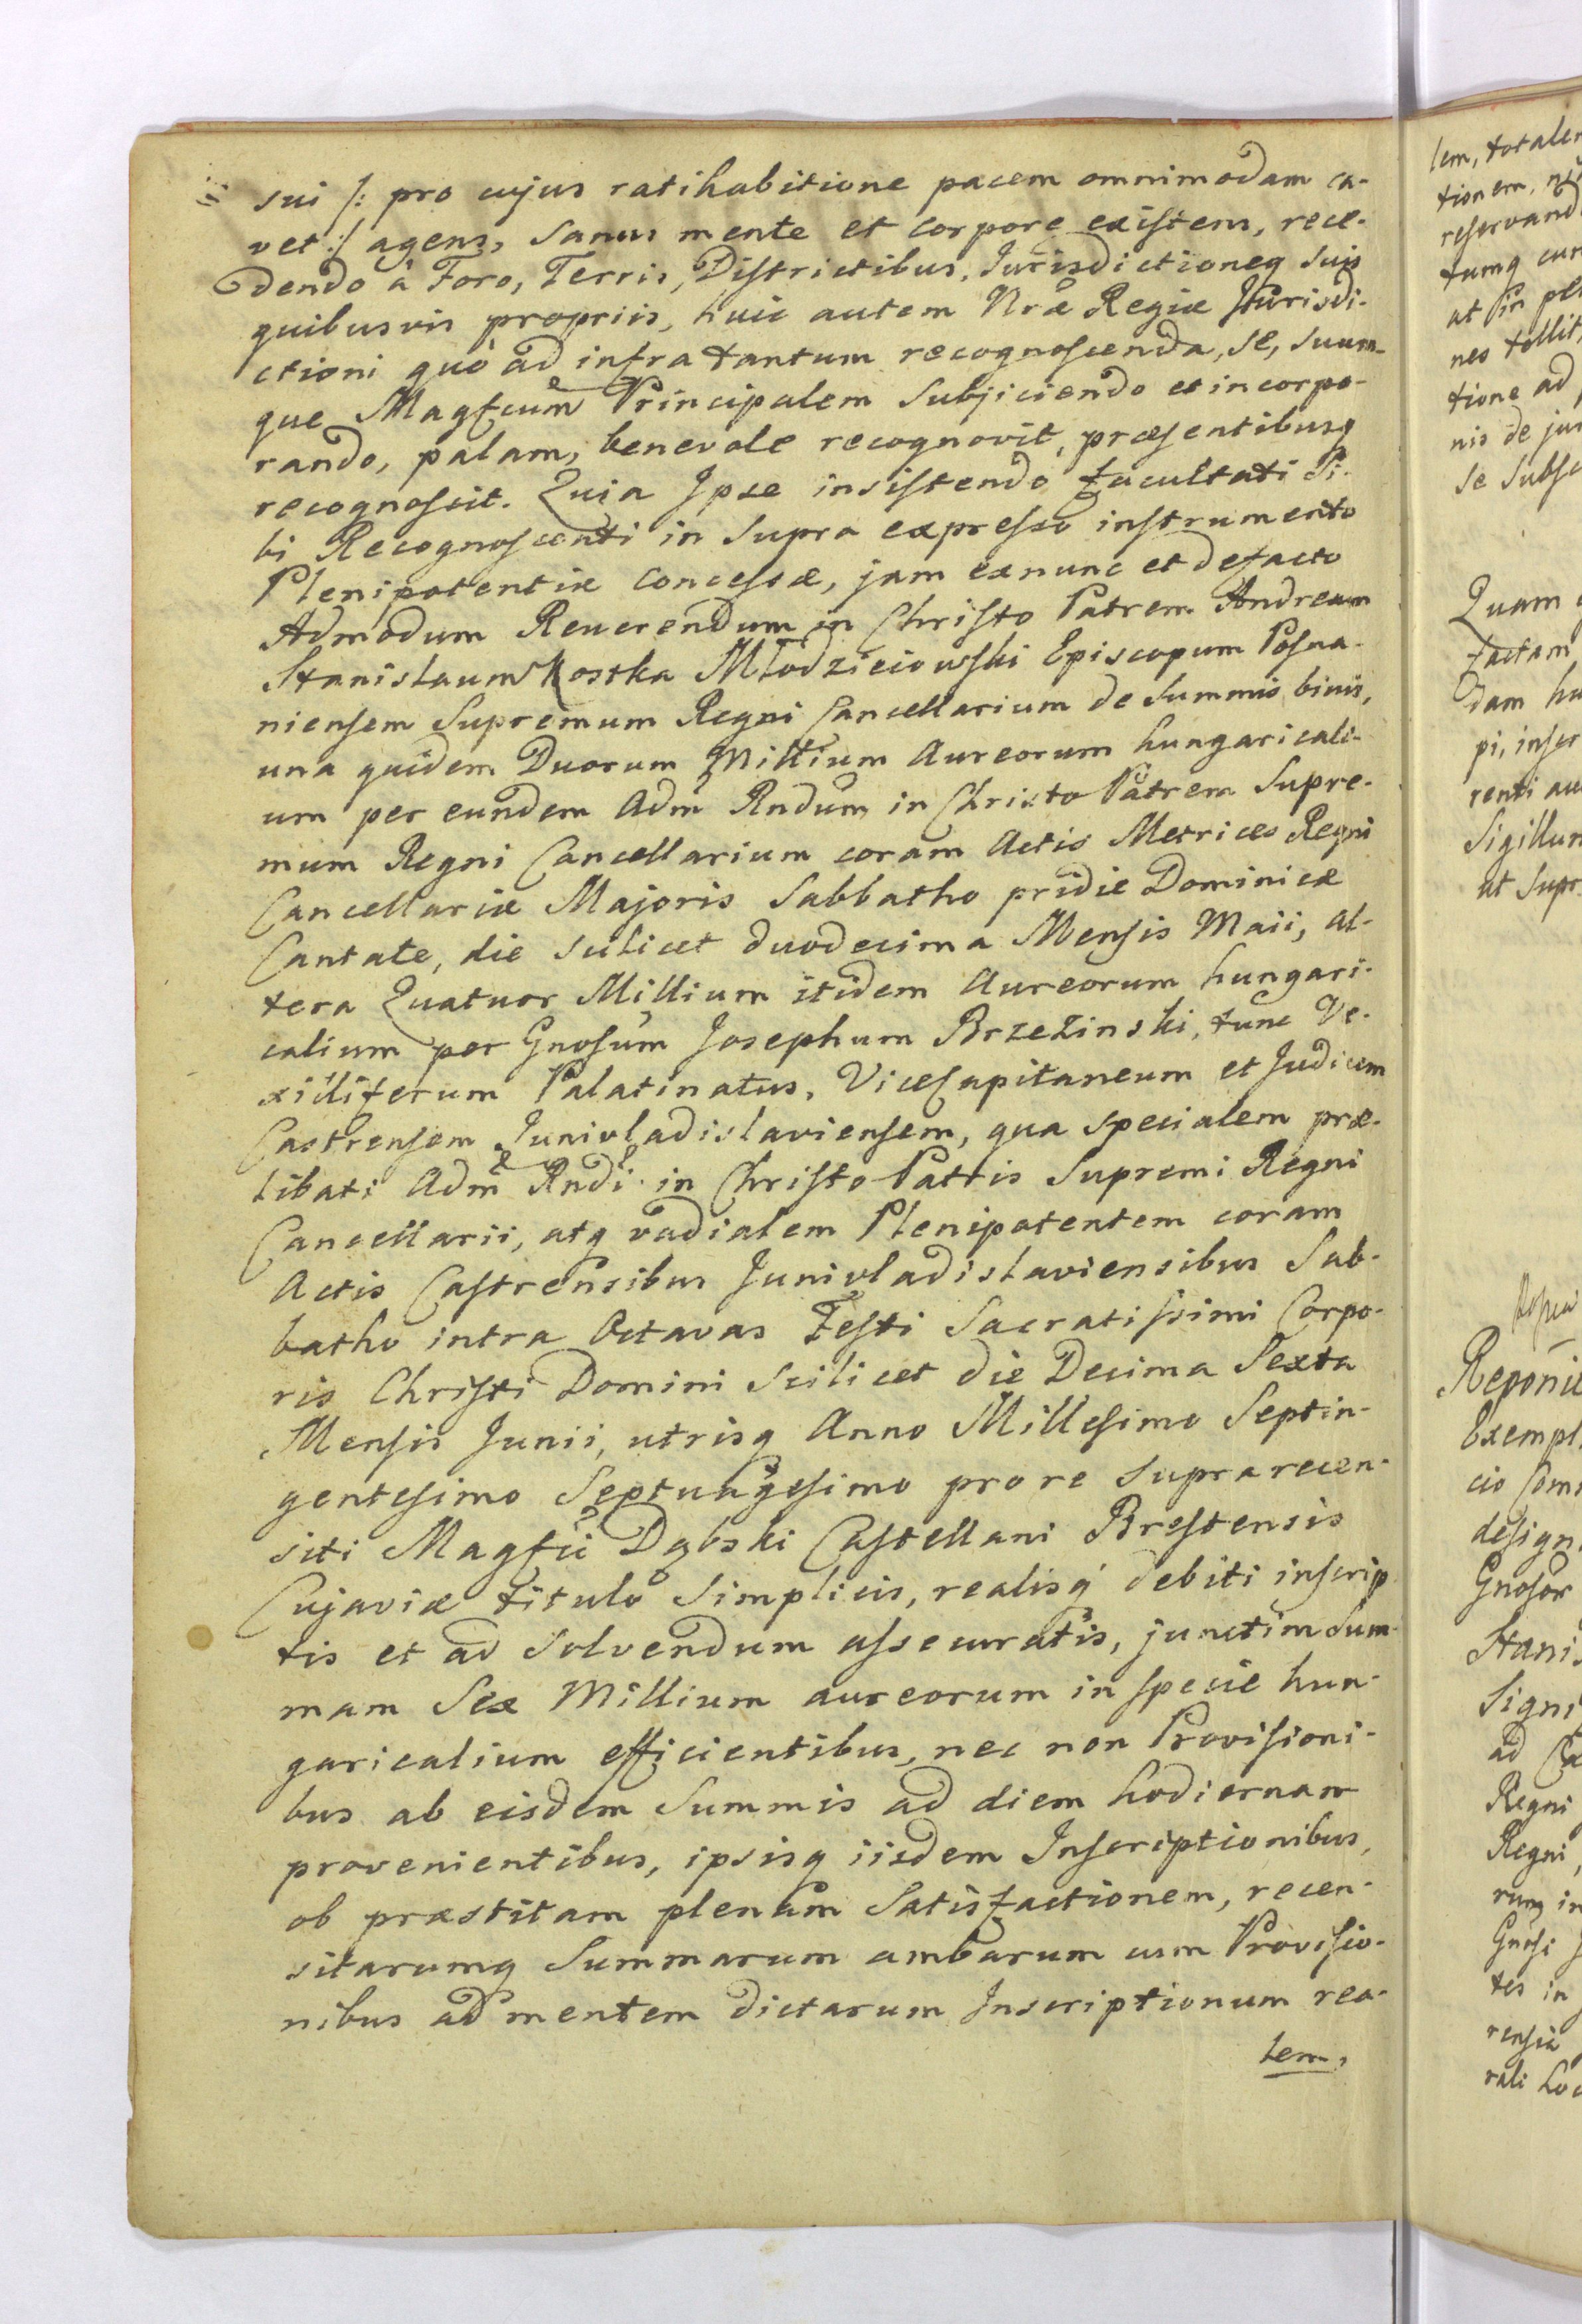 sui /: pro cujus ratihabitione pacem omnimodam ca-
vet :/ agens, sanus mente et corpore existens, rece-
dendo à Foro, Terris, Districtibus, Jurisdictioneq suis
quibusvis propriis, huic autem Nræ Regiæ Jurisdi-
ctioni quò ad infra tantum recognoscenda, se, suum-
que Magfcum Principalem subjiciendo et incorpo-
rando, palam, benevole recognovit, præsentibusq
recognoscit. Quia Ipse insistendo facultati Si-
bi Recognoscenti in supra expresso instrumento
Plenipotentiæ concessæ, jam exnunc et defacto
Admodum Reverendum in Christo Patrem Andream
Stanislaum Kostka Młodzieiowski Episcopum Posna-
niensem Supremum Regni Cancellarium de Summis binis,
una quidem Duorum Millium Aureorum hungaricali-
um per eundem Adm Rndum in Christo Patrem Supre-
mum Regni Cancellarium coram Actis Metrices Regni
Cancellariæ Majoris Sabbatho pridie Dominicæ
Cantate, die scilicet duodecima Mensis Maii, al-
tera Quatuor Millium itidem Aureorum hungari-
calium per Gnosum Josephum Brzezinski, tunc Ve-
xilliferum Palatinatus, ViceCapitaneum et Judicem
Castrensem Junivladislaviensem, qua specialem præ-
libati Adm Rndi in Christo Patris Supremi Regni
Cancellarii, atq vadialem Plenipotentem coram
Actis Castrensibus Junivladislaviensibus Sab-
batho intra Octavas Festi Sacratissimi Corpo-
ris Christi Domini scilicet die Decima Sexta
Mensis Junii, utrisq Anno Millesimo Septin-
gentesimo Septuagesimo pro re supra recen-
siti Magfci Dąbski Castellani Brestensis
Cujaviæ titulo simplicis, realisq debiti inscrip
tis et ad solvendum assecuratis, junctim Sum-
mam Sex Millium aureorum in specie hun-
garicalium efficientibus, nec non Provisioni-
bus ab eisdem Summis ad diem hodiernam
provenientibus, ipsisq iisdem Inscriptionibus,
ob præstitam plenam Satisfactionem, recen-
sitarumq Summarum ambarum cum Provisio-
nibus ad mentem dictarum Inscriptionum rea-
lem,
lem, totalem
tionem,
reservand
tumq cum
at in ple
nes tollit,
tione ad
nis de jur
se subsc
Quam
factam
dam hu
pi, inser
renti au
Sigillum
ut supr
Reponi
Exempl
cio Com
design
Gnosor
Stanis
Signi
ad Ca
Regni
Regni,
rumq in
Gnosi J
tes in
rensia
rali hoc